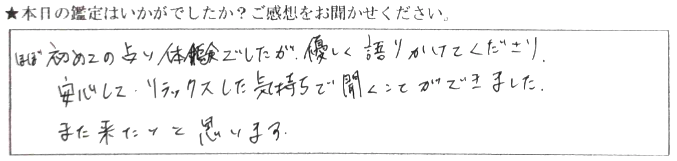 ★本日の鑑定はいかがでしたか?ご感想をお聞かせください。
ほぼ初めての占い体験でしたが、優しく語りかけてくださり、
安心して、リラックスした気持ちで聞くことができました。
また来たいと思います。